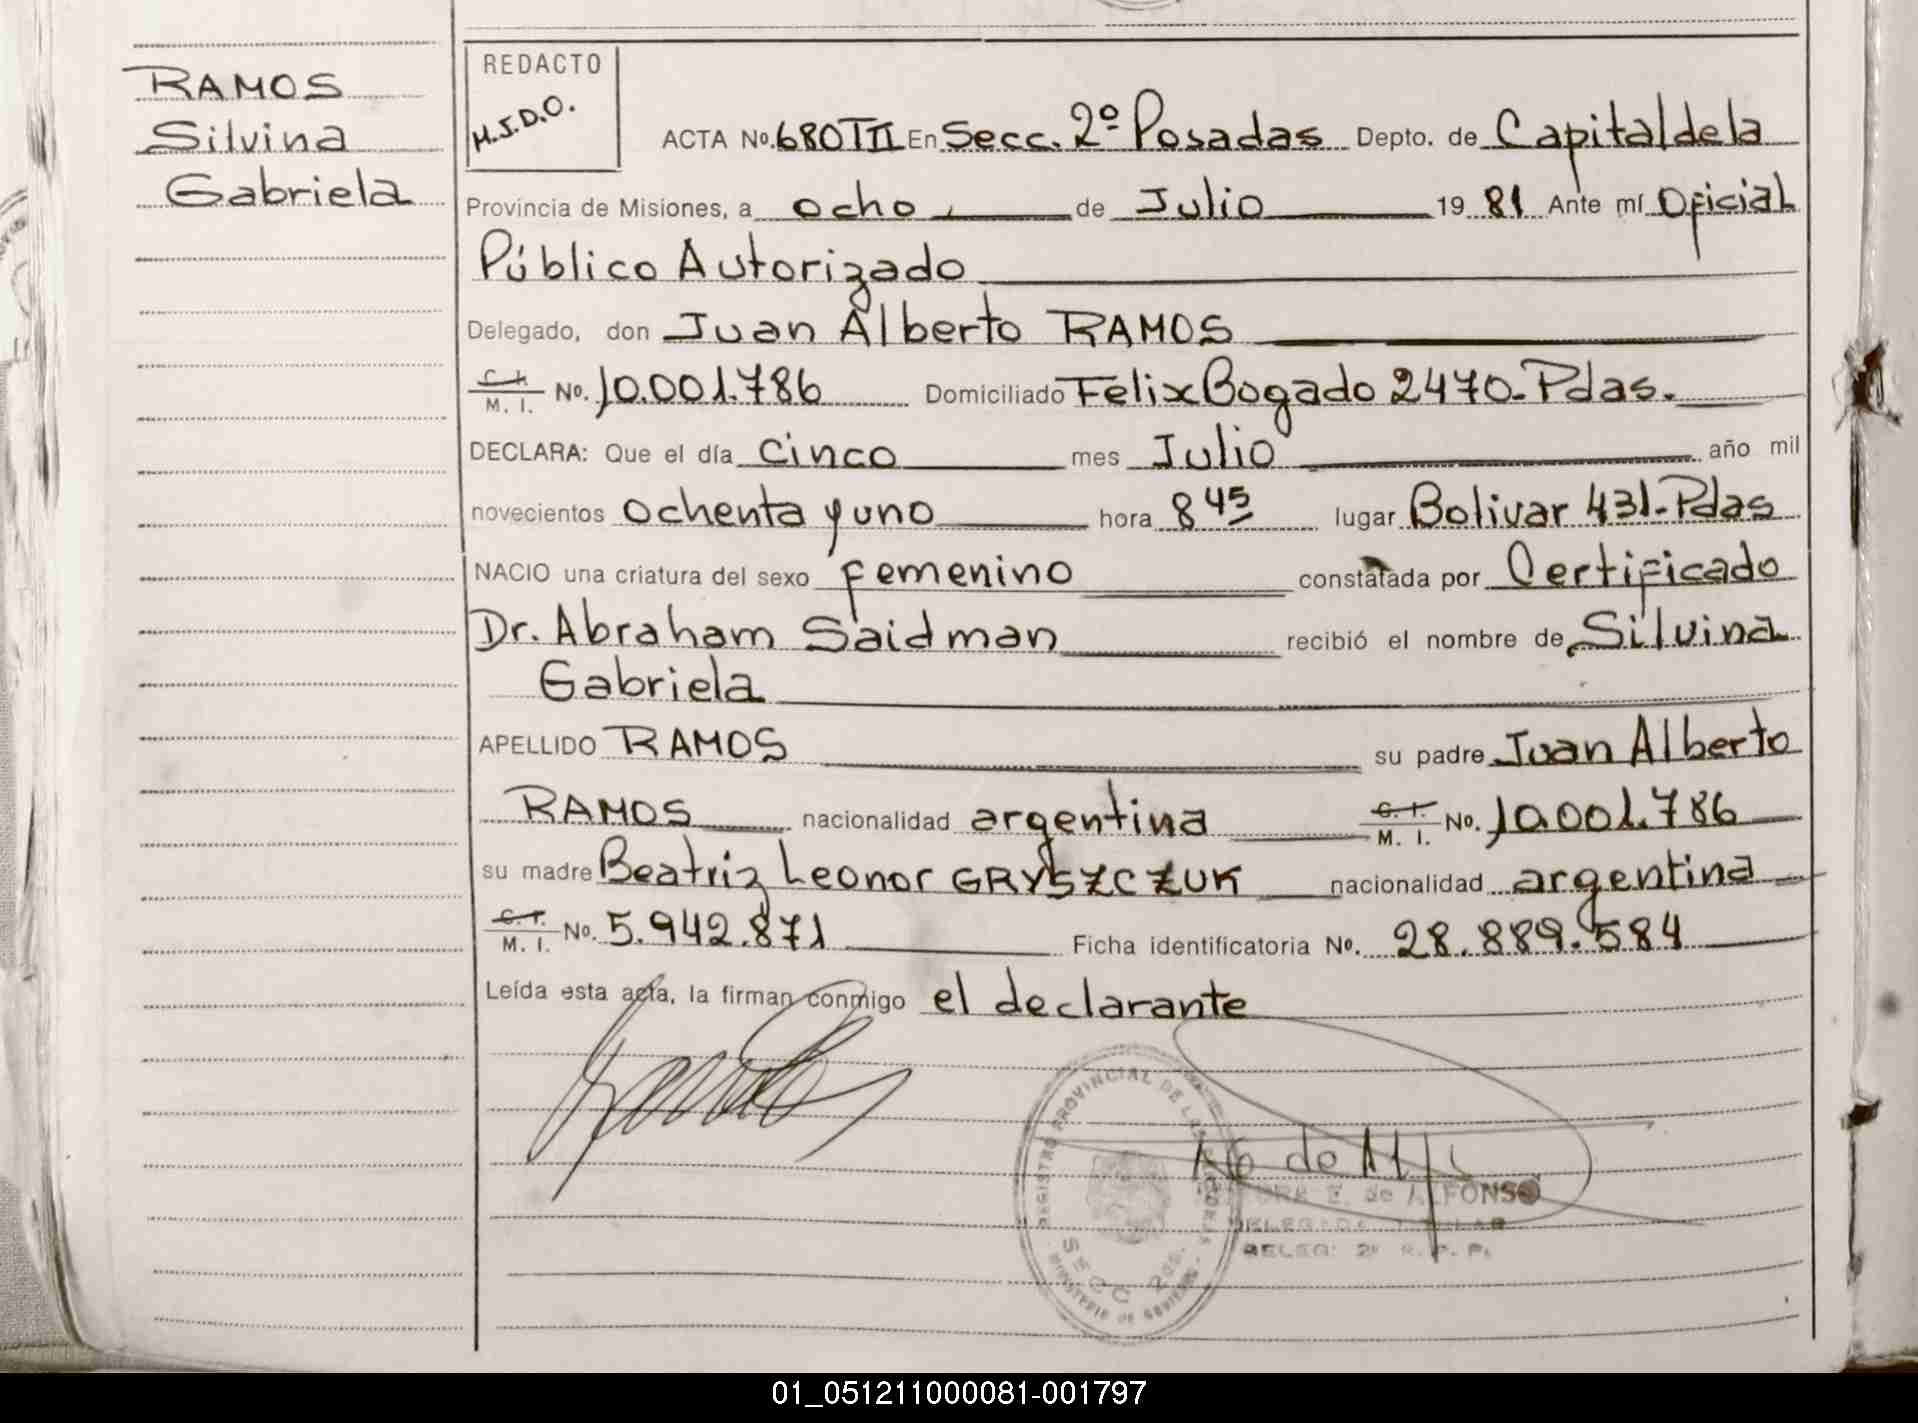 RAMOS
Silvina
Gabriela
REDACTO
H.J.D.O.
ACTA No. 680 TII En Secc. 2º Posadas Depto. de Capital de la
Provincia de Misiones, a ocho de Julio 1981 Ante mí Oficial
Público Autorizado
Delegado, don Juan Alberto RAMOS
C. I. / M. I. No. 10.001.786 Domiciliado Felix Bogado 2470-Pdas.
DECLARA: Que el día cinco mes Julio año mil
novecientos ochenta y uno hora 8 45 lugar Bolivar 431-Pdas
NACIO una criatura del sexo femenino constatada por Certificado
Dr. Abraham Saidman recibió el nombre de Silvina
Gabriela
APELLIDO RAMOS su padre Juan Alberto
RAMOS nacionalidad argentina C. I. / M. I. No. 10.001.786
su madre Beatriz Leonor GRYSZCZUK nacionalidad argentina
C. I. / M. I. No. 5.942.871 Ficha identificatoria No. 28.889.584
Leída esta acta, la firman conmigo el declarante
REGISTRO PROVINCIAL DE LAS PERSONAS
SECC. 2da.
MINISTERIO DE GOBIERNO
E. de ALFONSO
DELEGADA TITULAR
DELEG. 2ª R. P. P.
01_051211000081-001797